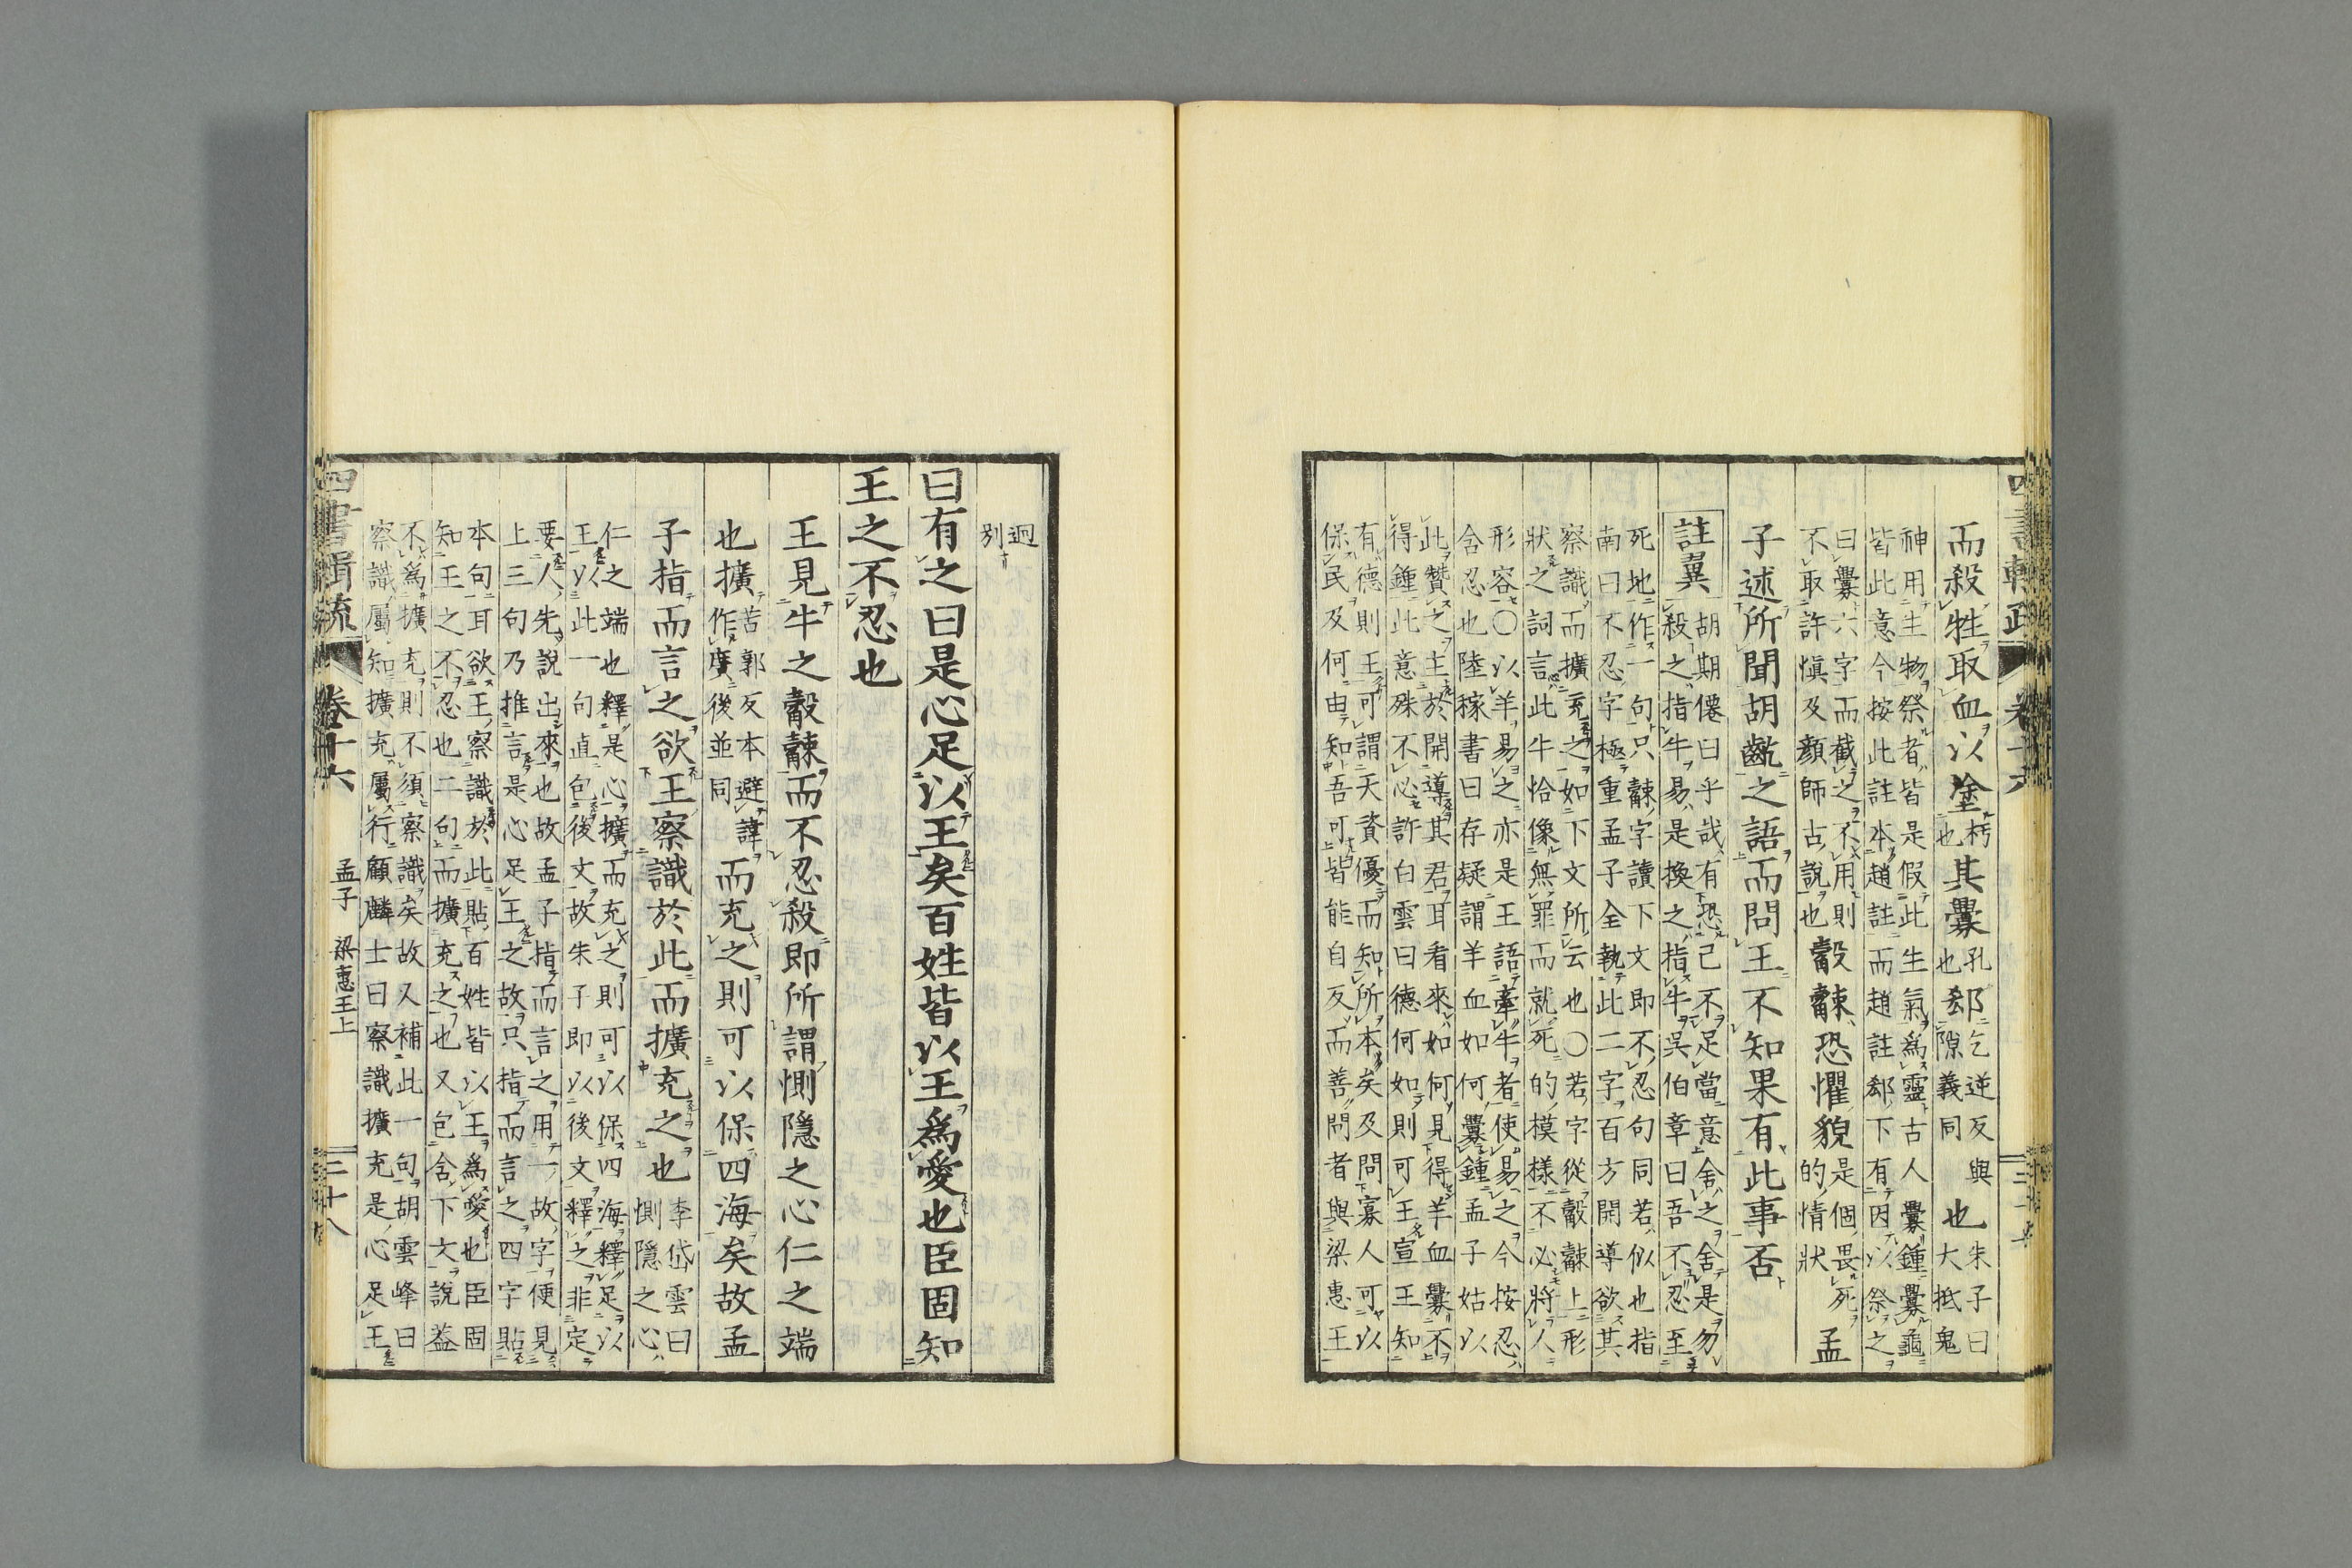 而殺牲取血以塗杇也其釁孔也郄乞逆反與隙義同也朱子曰大抵鬼
神用生物祭者皆是假此生氣爲靈古人釁鍾釁龜
皆此意今按此註本趙註而趙註郄下有因以祭之
曰釁六字而截之不用則不取許愼及顏師古說也觳觫恐懼貌是個畏死的情狀孟
子述所聞胡齕之語而問王不知果有此事否
註異 胡期僊曰乎哉有恐己不足當意舍之舍是勿
殺之指牛易是換之指牛吳伯章曰吾不忍至
死地作一句只觫字讀下文即不忍句同若似也指
南曰不忍字極重孟子全執此二字百方開導欲其
察識而擴充之如下文所云也〇若字從觳觫上形
狀之詞言此牛恰像無罪而就死的模樣不必將人
形容〇以羊易之亦是王語牽牛者使易之今按忍
含忍也陸稼書曰存疑謂羊血如何釁鍾孟子姑以
此贊之主於開導其君耳看來如何見得羊血釁不
得鍾此意殊不必許白雲曰德何如則可王宣王知
有德則王可謂天資優而知所本矣及問寡人可以
保民及何由知吾可皆能自反而善問者與梁惠王
迥
別
曰有之曰是心足以王矣百姓皆以王爲愛也臣固知
王之不忍也
王見牛之觳觫而不忍殺即所謂惻隱之心仁之端
也擴苦郭反本避諱作廣後並同而充之則可以保四海矣故孟
子指而言之欲王察識於此而擴充之也李岱雲曰惻隱之心
仁之端也釋是心擴而充之則可以保四海釋足以
王以此一句直包後文故朱子即以後文釋之非定
要人先說出來也故孟子指而言之用一故字便見
上三句乃推言是心足王之故只指而言之四字貼
本句耳欲王察識於此貼百姓皆以王爲愛也臣固
知王之不忍也二句而擴充之也又包含下文說蓋
不爲擴充則不須察識矣故又補此一句胡雲峰曰
察識屬知擴充屬行顧麟士曰察識擴充是心足王
四書輯疏 卷十六 孟子 梁惠王上 三十八